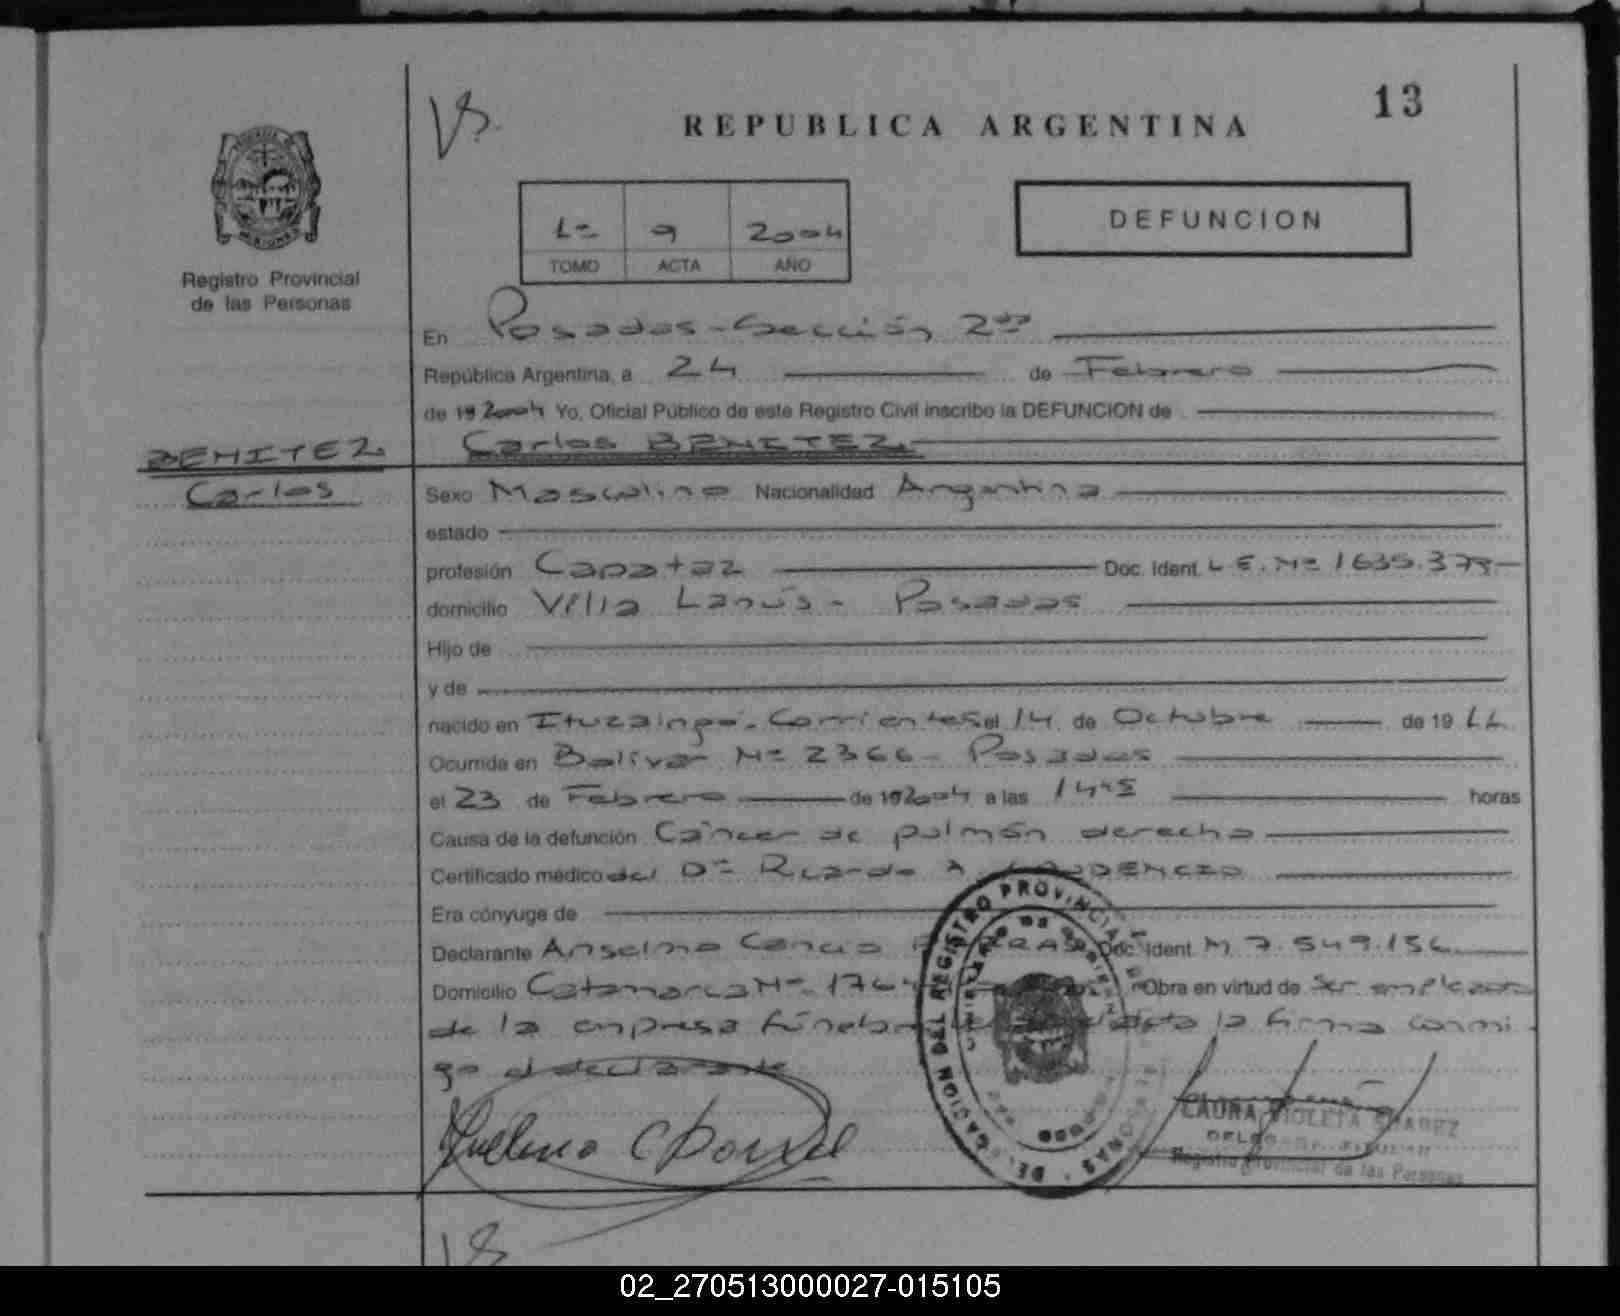 13
REPUBLICA ARGENTINA
Registro Provincial
de las Personas
1º 9 2004
TOMO ACTA AÑO
DEFUNCION
En Posadas - Sección 2da
República Argentina, a 24 de Febrero
de 19 2004 Yo, Oficial Público de este Registro Civil inscribo la DEFUNCION de
BENITEZ Carlos BENITEZ
Carlos Sexo Masculino Nacionalidad Argentina
estado
profesión Capataz Doc. Ident. L.E. Nº 1635.373
domicilio Villa Lanús - Posadas
Hijo de
y de
nacido en Ituzaingó - Corrientes el 14 de Octubre de 19
Ocurrida en Bolívar Nº 2366 - Posadas
el 23 de Febrero de 19 2004 a las 1445 horas
Causa de la defunción Cáncer de pulmón derecho
Certificado médico del Dr Ricardo
Era cónyuge de
Declarante Anselmo Doc. Ident. M. 7.549.156
Domicilio Catamarca Nº Obra en virtud de ser empleado
de la empresa fúnebre la firma conmi
go el declarante
DELEGACION DEL REGISTRO PROVINCIAL
LAURA VIOLETA SUAREZ
Registro Provincial de las Personas
02_270513000027-015105